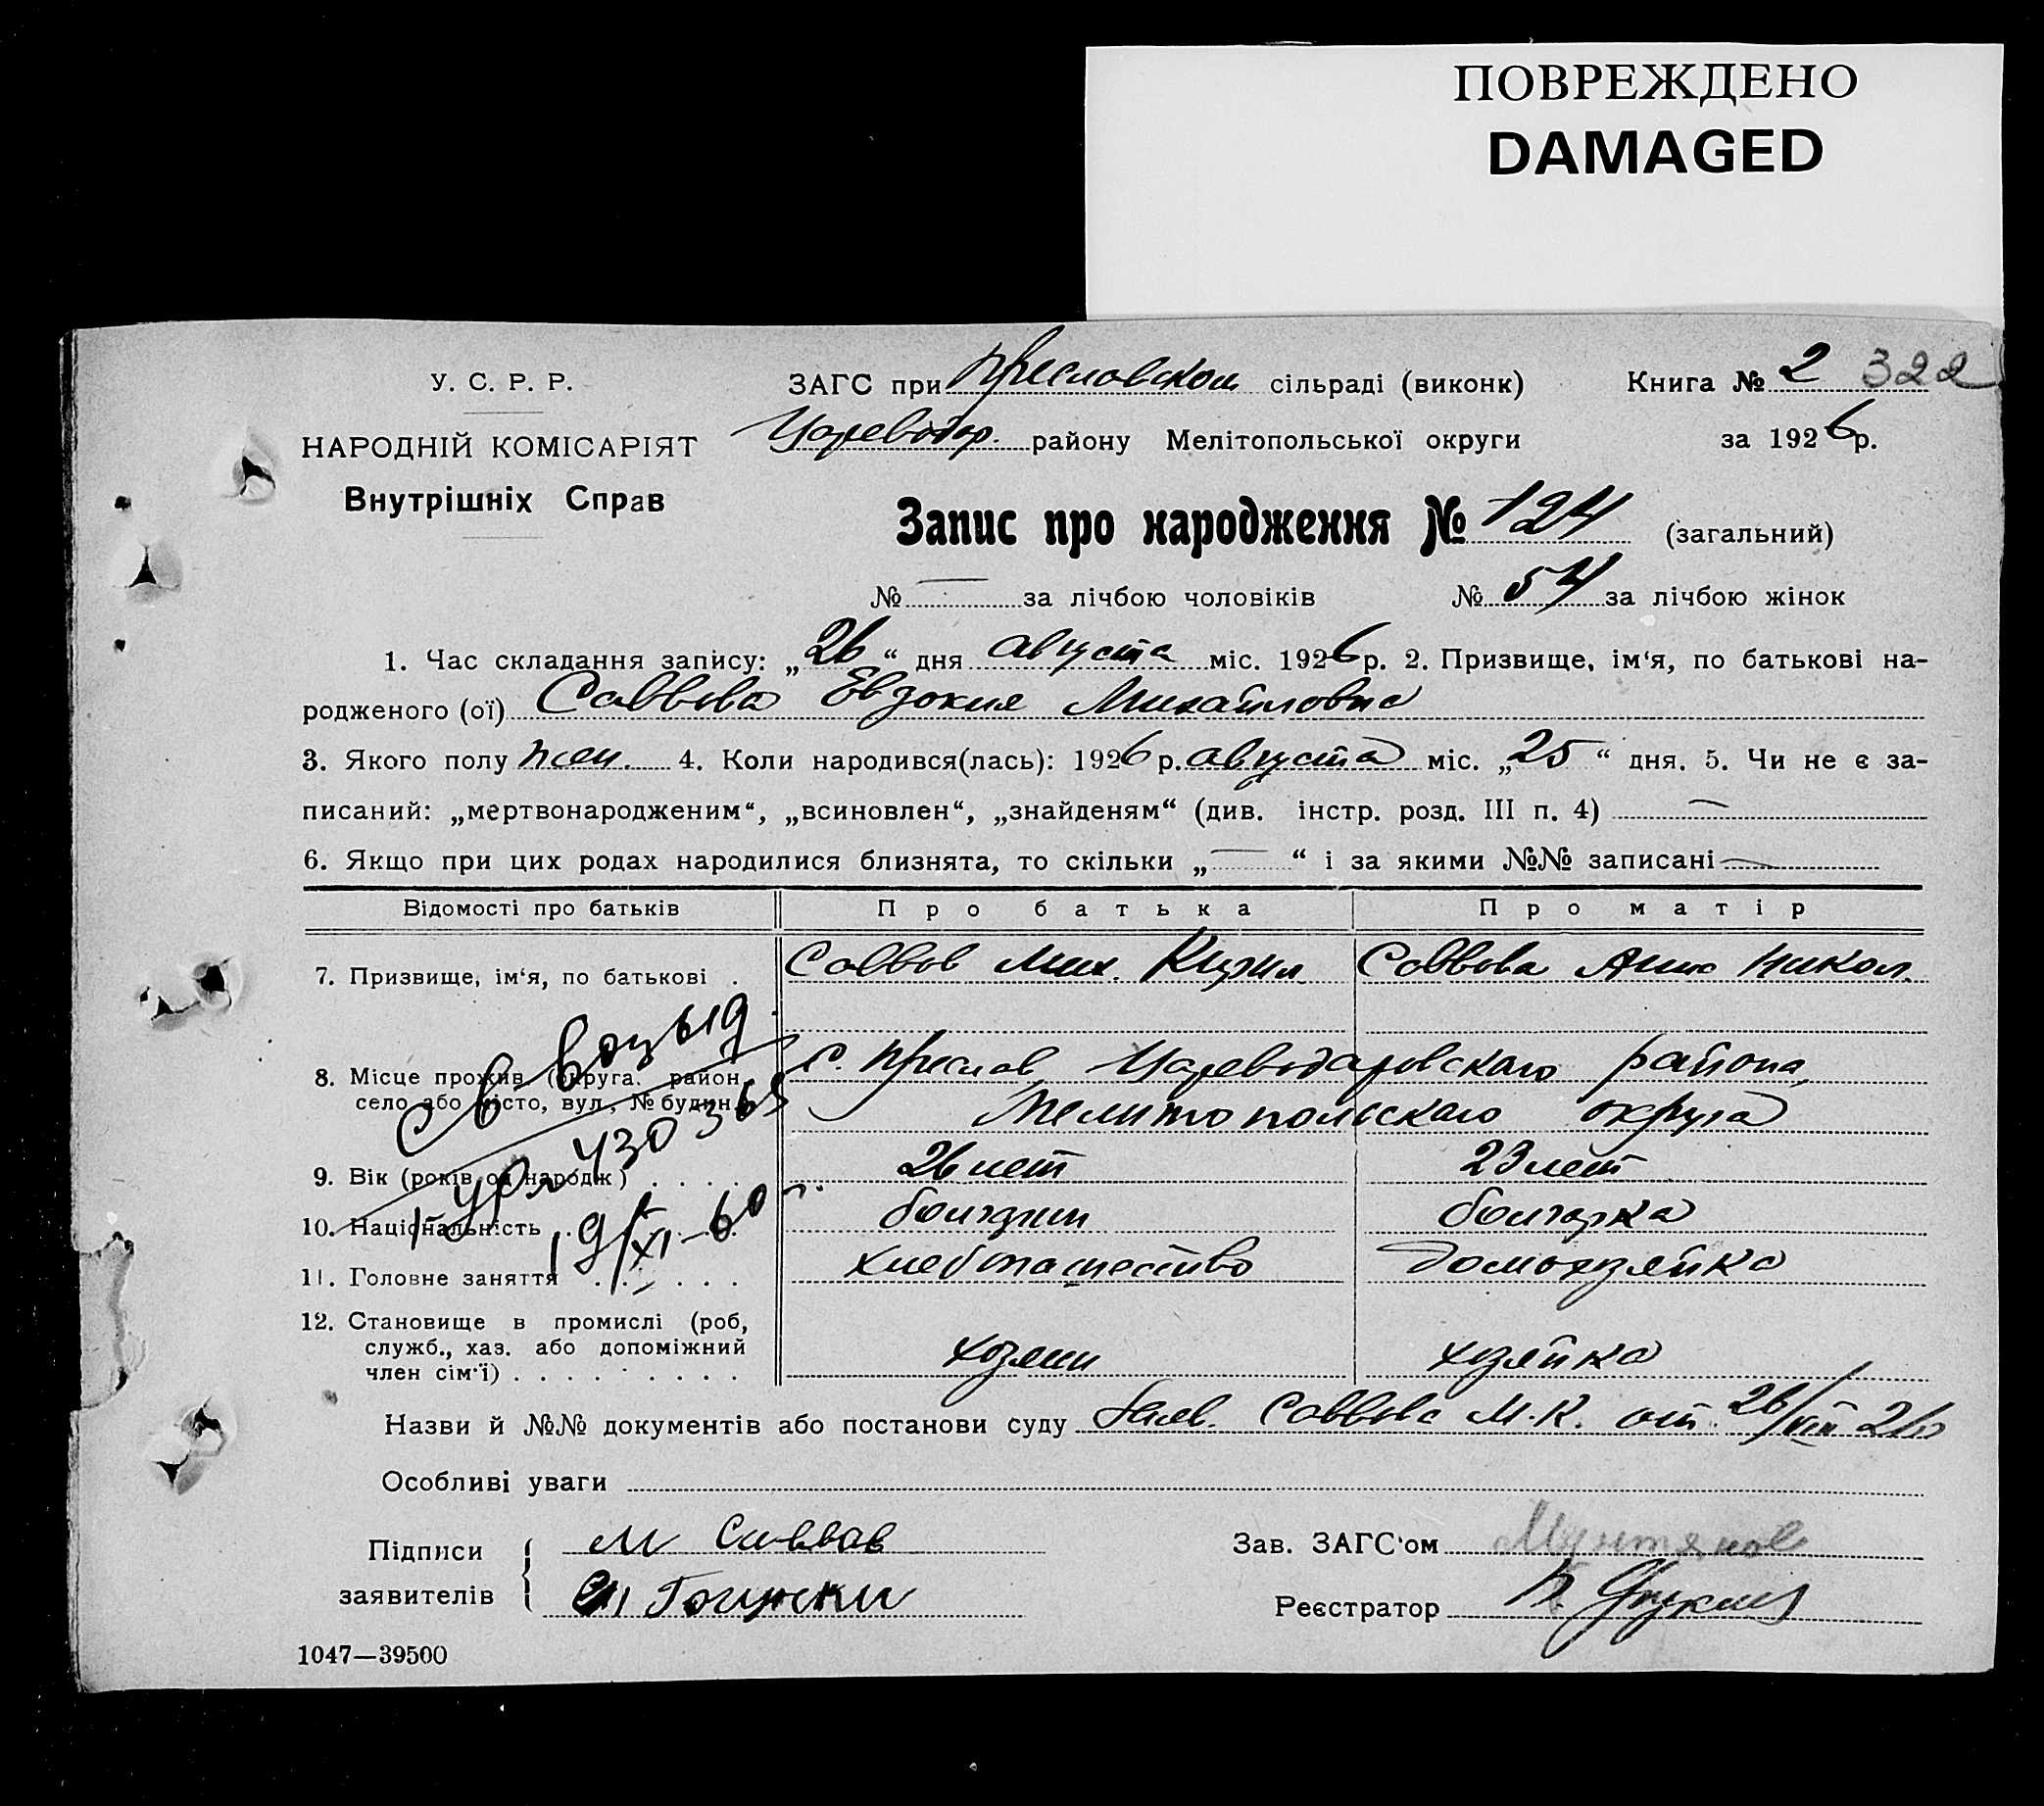 ПОВРЕЖДЕНО
DAMAGED
У. С. Р. Р.
НАРОДНІЙ КОМІСАРІЯТ
Внутрішніх Справ
ЗАГС при Преславском сільраді (виконк)
Книга № 2 322
Цареводар. району Мелітопольської округи
за 1926 р.
Запис про народження № 124 (загальний)
№ — за лічбою чоловіків № 54 за лічбою жінок
1. Час складання запису: „26“ дня августа міс. 1926 р. 2. Призвище, ім‘я, по батькові на-
родженого (ої) Саввова Евдокия Михайловна
3. Якого полу жен. 4. Коли народився(лась): 1926 р. августа міс. „25“ дня. 5. Чи не є за-
писаний: „мертвонародженим“, „всиновлен“, „знайденям“ (див. інстр. розд. III п. 4) —
6. Якщо при цих родах народилися близнята, то скільки „—“ і за якими №№ записані —
Відомості про батьків Про батька Про матір
7. Призвище, ім‘я, по батькові . Саввов Мих. Кирил. Саввова Анна Никол.
8. Місце прожив. (округа, район, село або місто, вул., № будин.) с. Преслав, Цареводаровскаго района,
Мелитопольскаго округа
9. Вік (років од народж) . . . . 26 лет 23 лет
10. Національність . . . болгарин болгарка
11. Головне заняття . . . . . . хлебопашество домохозяйка
12. Становище в промислі (роб,
служб., хаз. або допоміжний
член сім‘ї) . . . . . . . . . хозяин хозяйка
св выд
430365
19/XI-60
Назви й №№ документів або постанови суду Заяв. Саввова М.К. от 26/VIII 26
Особливі уваги
Підписи
заявителів
М Саввов
Зав. ЗАГС‘ом
Реєстратор
1047—39500